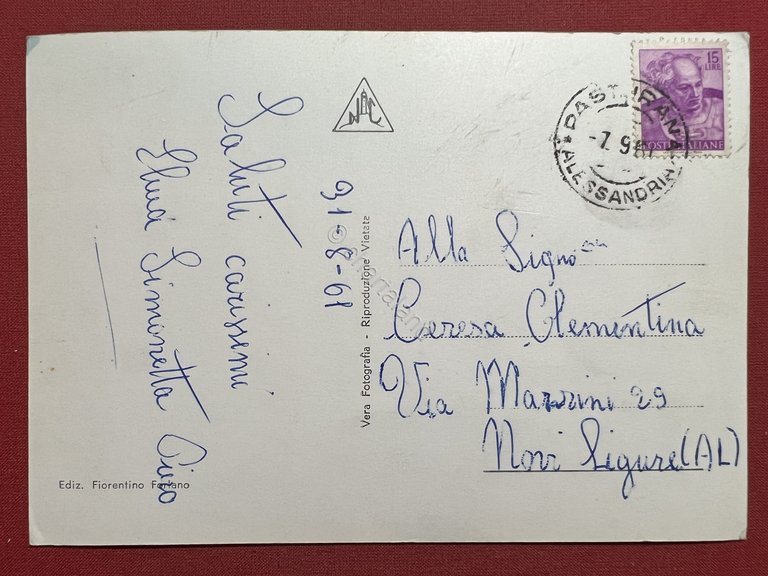 Saluti carissimi
Elina Simonetta Pino
31-8-61
Vera Fotografia - Riproduzione Vietata
Ediz. Fiorentino Forlano
15
LIRE
POSTE ITALIANE
PASTURANA
-7.9.61
ALESSANDRIA
Alla Signora
Ceresa Clementina
Via Mazzini 29
Novi Ligure (AL)